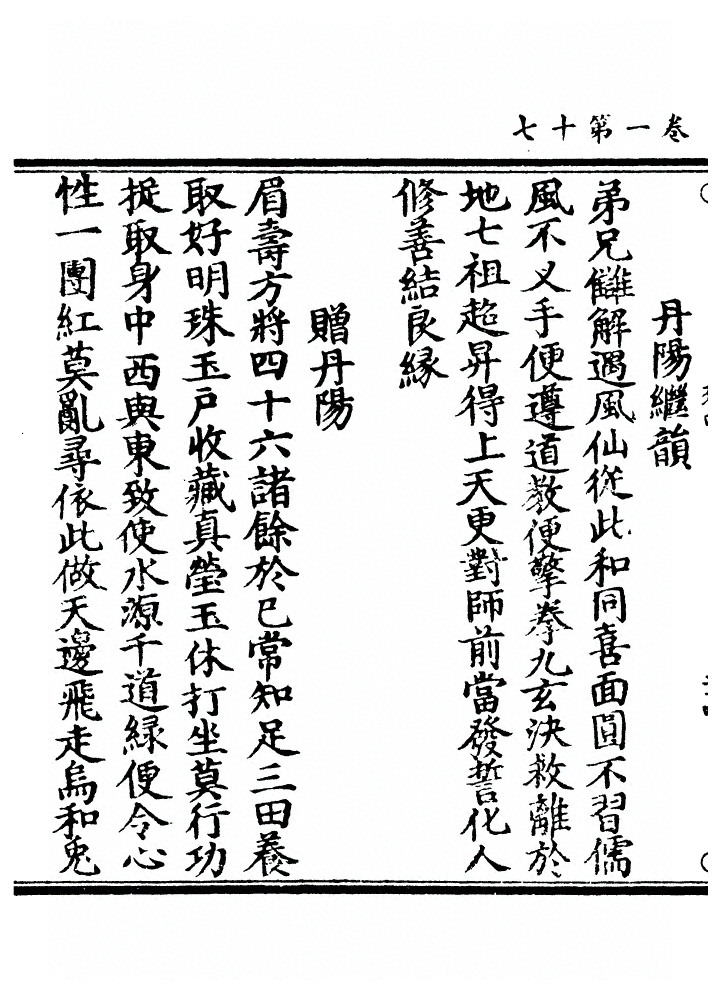 卷一第十七
丹陽繼韻
弟兄讎解遇風仙從此和同喜面圓不習儒
風不义手便遵道教便擎拳九玄決救離於
地七祖超昇得上天更對師前當發誓化人
修善結良緣
贈丹陽
眉壽方將四十六諸餘於已常知足三田養
取好明珠玉户收藏真瑩玉休打坐莫行功
捉取身中西與東致使水源千道緑便令心
性一團紅莫亂尋依此做天邊飛走烏和兔